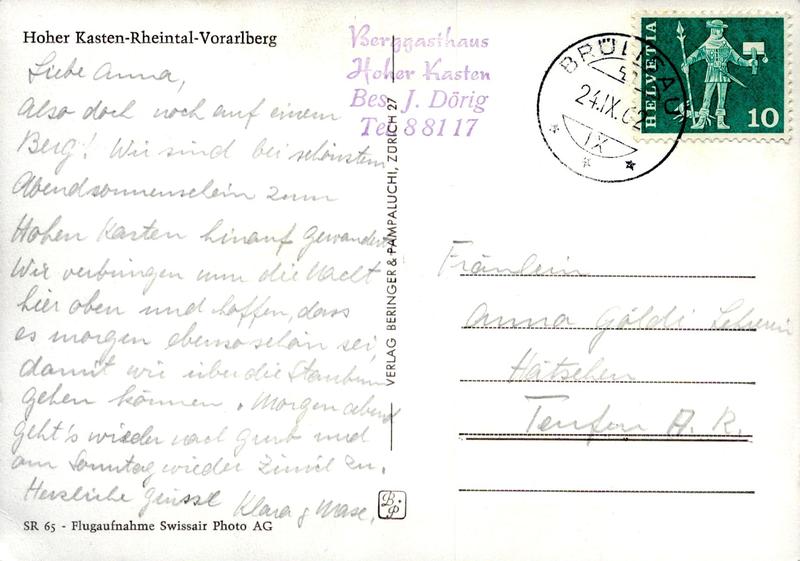 Hoher Kasten-Rheintal-Vorarlberg
Liebe Anna,
Also doch noch auf einem
Berg! Wir sind bei schönstem
Abendsonnenschein zum
Hohen Kasten hinauf gewandert
Wir verbringen nun die Nacht
hier oben und hoffen, dass
es morgen ebenso schön sei,
damit wir über die Staubern
gehen können. Morgen abend
geht's wieder nach und
am Sonntag wieder Zürich zu.
Herzliche Grüsse Klara &
SR 65 - Flugaufnahme Swissair Photo AG
Berggasthaus
Hoher Kasten
Bes. J. Dörig
Tel. 8 81 17
VERLAG BERINGER & PAMPALUCHI, ZÜRICH 27
B.P
BRÜLISAU
24.IX.62
IX
HELVETIA
10
Fräulein
Anna Göldi Lehrerin
Hätschen
Teufen A. R.